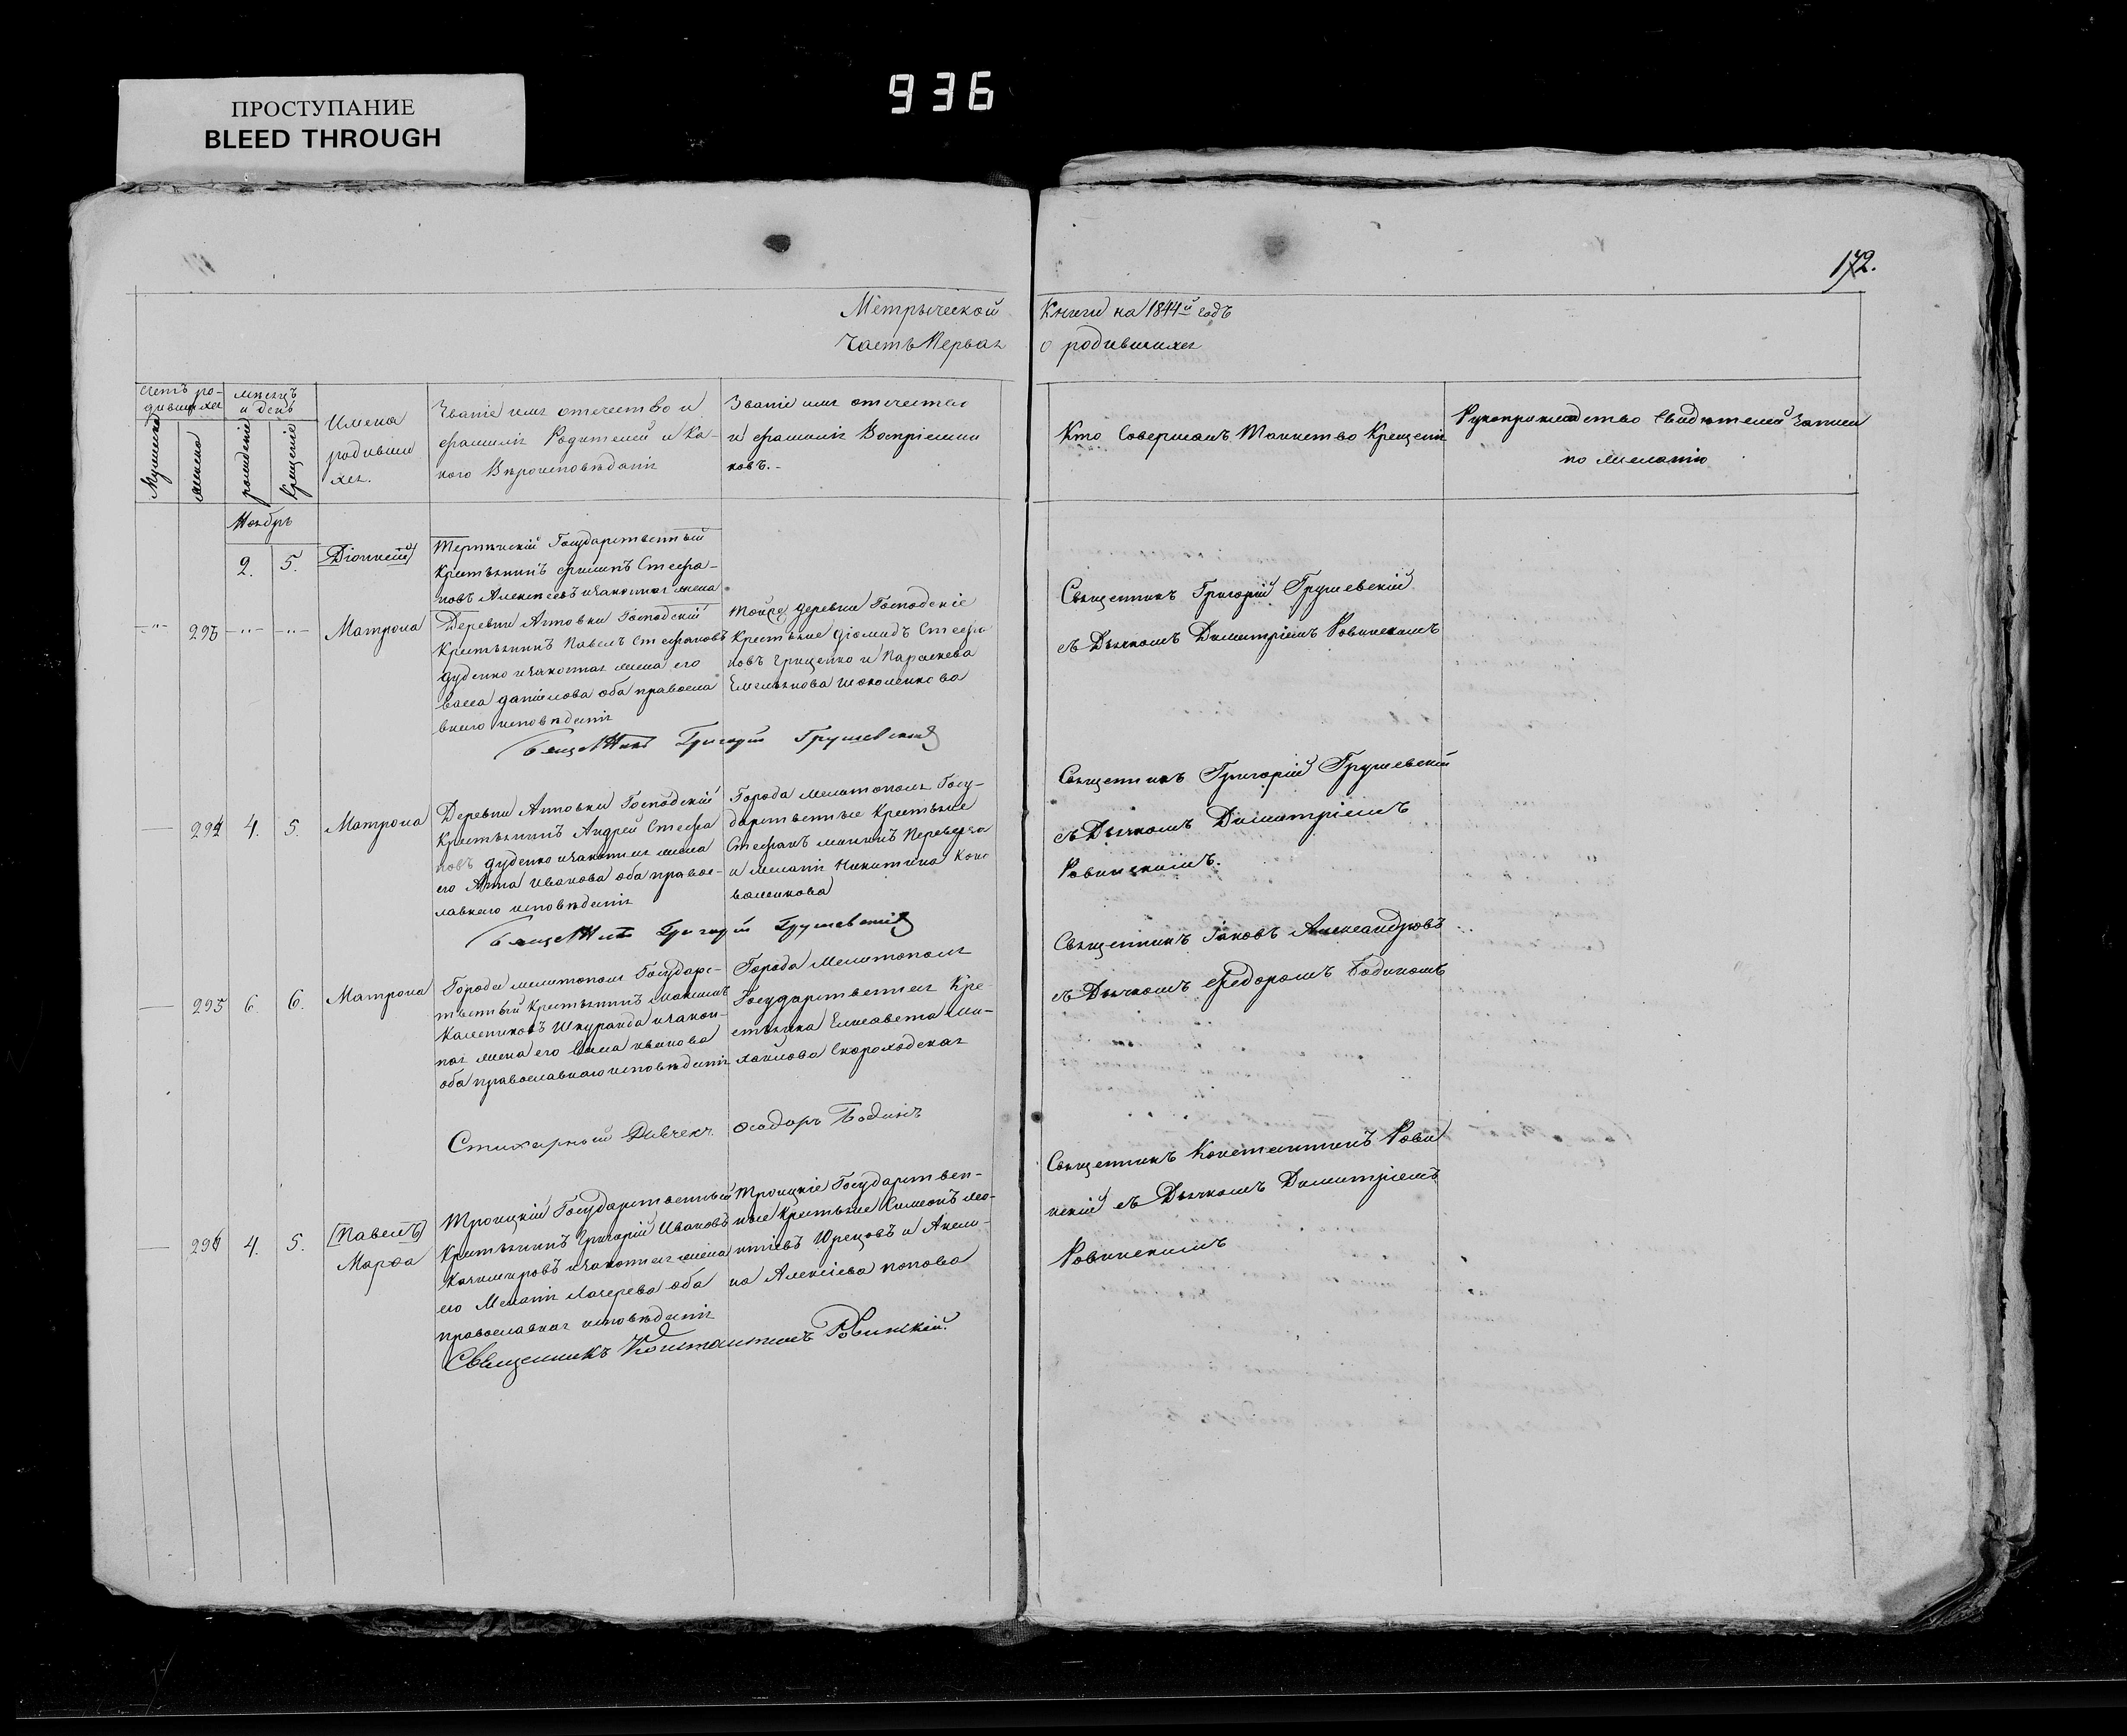 ПРОСТУПАНИЕ
BLEED THROUGH
936
172.
Метрыческой Книги на 1844й годъ
Часть Первая о родившихся
Счетъ ро-
дившихся
мѣсяцъ
и день
Мужеска
женска
рожденіе
Крещеніе
Имена
родивши
хся.
Званіе имя отечество и
фамилія Родителей и ка-
кого Вѣроисповѣданія
Званіе имя отечество
и фамилія Воспріемни
ковъ.-
Кто Совершалъ Таинство Крещенія
Рукоприкладство Свидѣтелей записи
по желанію
Ноябрь
2. 5. Діонисій
Государственный
Крестьянинъ Филипъ Стефа-
новъ Алексеевъ изаконная жена
293 Матрона
Деревни Анновки Господскій
Крестьянинъ Павелъ Стефановъ
дуденко изаконная жена его
Васса данилова оба правосла
внаго исповѣданія
Тойже деревни Господскіе
Крестьяне діомидъ Стефа
новъ Грищенко и Параскева
Емельянова
Священникъ Григорій Грушевскій
съ Дьячкомъ Димитріемъ Ровинскимъ
Священникъ Григорій Грушевскій
294 4. 5. Матрона
Деревни Анновки Господскій
Крестьянинъ Андрей Стефа
новъ дуденко изаконная жена
его Анна Иванова оба правос-
лавнаго исповѣданія
Города мелитополя Госу-
дарственные Крестьяне
Стефанъ
и Меланія Никитина
Священникъ Григорій Грушевскій
съ Дьячкомъ Димитріемъ
Ровинскимъ.
Священникъ Григорій Грушевскій
295 6. 6. Матрона
Города мелитополя Государс-
твенный Крестьянинъ Максимъ
Калениковъ Шкуранда изакон-
ная жена его Васса иванова
оба православнаго исповѣданія
Города Мелитополя
Государственная Кре
стьянка Елисавета Ми-
хайлова Скороходская
Священникъ Іаковъ Александровъ
съ Дьячкомъ Федоромъ Бодиномъ
Стихарный Дьячекъ Феодоръ Бодинъ
296 4. 5. [Павелъ]
Марѳа
Троицкій Государственный
Крестьянинъ Григорій Ивановъ
изаконная жена
его Меланія Лазерева оба
православнаго исповѣданія
Троицкіе Государствен-
ные Крестьяне Симеонъ лео-
нтіевъ и Акели-
на Алексіева попова
Священникъ Константинъ Рови
нскій съ Дьячкомъ Димитріемъ
Ровинскимъ
Священникъ Константинъ Ровинскій.